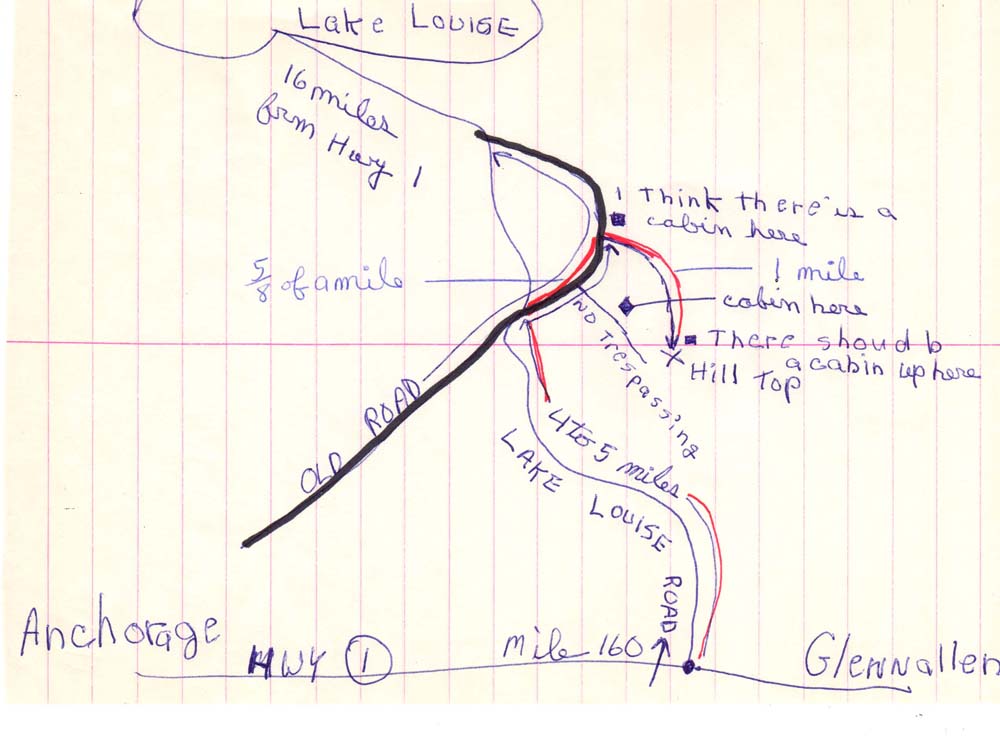 Lake LOUISE
16 miles
form Hwy 1
I Think there is a
cabin here
1 mile
5/8 of a mile
cabin here
NO Trespassing
There shoud b
a cabin up here
X
Hill Top
OLD ROAD
4 to 5 miles
LAKE LOUISE ROAD
Anchorage
HWY 1
mile 160
Glennallen